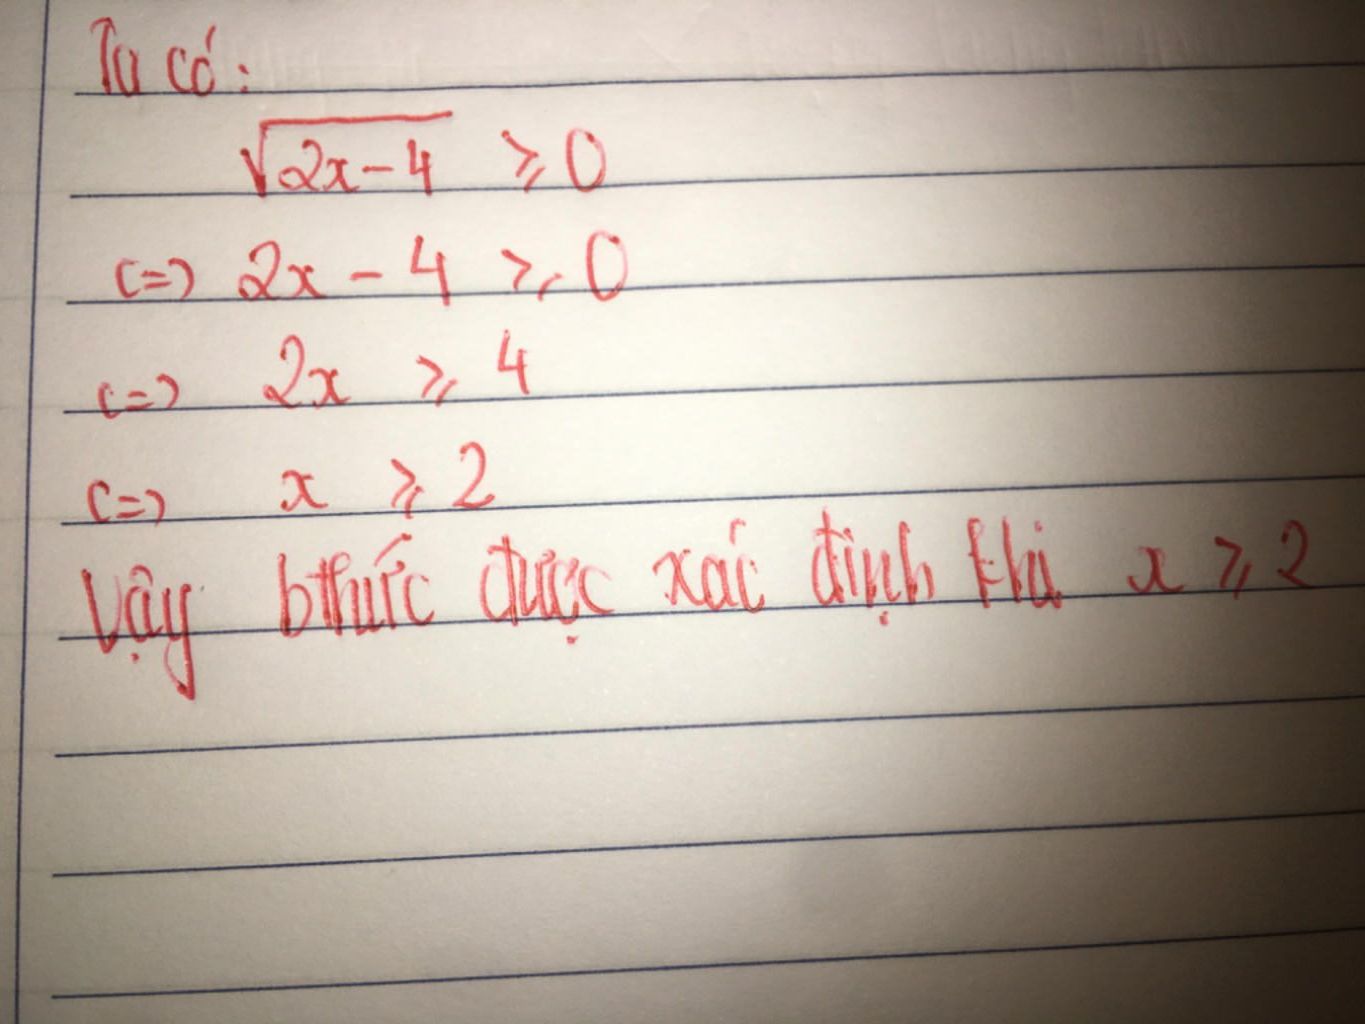 Ta có:
√2x-4 ⩾ 0
<=> 2x - 4 ⩾ 0
<=> 2x ⩾ 4
<=> x ⩾ 2
Vậy bthức được xác định khi x ⩾ 2